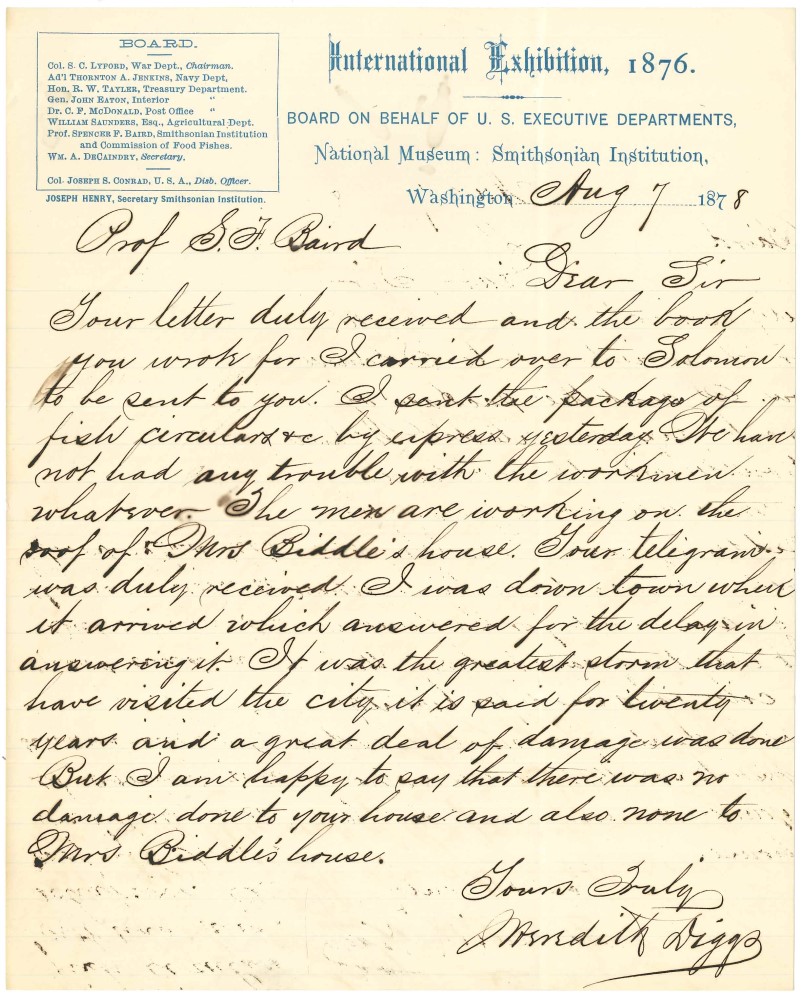 BOARD.
Col. S. C. Lyford, War Dept., Chairman.
Ad'l Thornton A. Jenkins, Navy Dept,
Hon. R. W. Tayler, Treasury Department.
Gen. John Eaton, Interior "
Dr. C. F. McDonald, Post Office "
William Saunders, Esq., Agricultural Dept.
Prof. Spencer F. Baird, Smithsonian Institution
and Commission of Food Fishes.
Wm. A. DeCaindry, Secretary.
Col. Joseph S. Conrad, U. S. A., Disb. Officer.
JOSEPH HENRY, Secretary Smithsonian Institution.
International Exhibition, 1876.
BOARD ON BEHALF OF U. S. EXECUTIVE DEPARTMENTS,
National Museum: Smithsonian Institution,
Washington Aug 7 1878
Prof S. F. Baird
Dear Sir
Your letter duly received and the book
you wrote for I carried over to Solomon
to be sent to you. I sent the package of
fish circulars &c by express yesterday. We have
not had any trouble with the workmen
whatever. The men are working on the
roof of Mrs Biddle's house. Your telegram
was duly received. I was down town when
it arrived which answered for the delay in
answering it. It was the greatest storm that
have visited the city it is said for twenty
years and a great deal of damage was done
But I am happy to say that there was no
damage done to your house and also none to
Mrs Biddle's house.
Yours Truly
Meredith Diggs